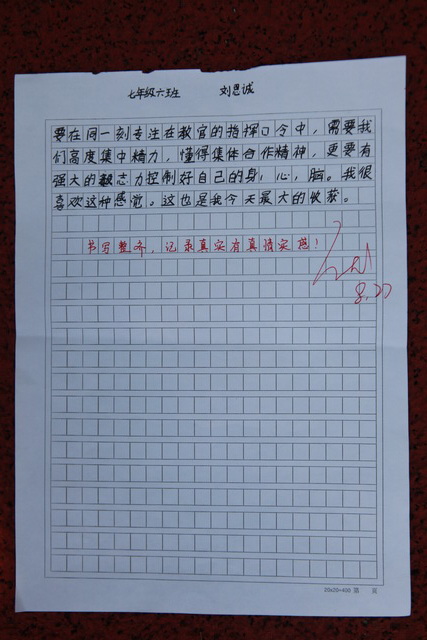 七年级六班 刘思诚
要在同一刻专注在教官的指挥口令中，需要我
们高度集中精力，懂得集体合作精神，更要有
强大的毅志力控制好自己的身，心，脑。我很
喜欢这种感觉。这也是我今天最大的收获。
书写整齐，记录真实有真情实感！
8.20
20x20=400 第 页